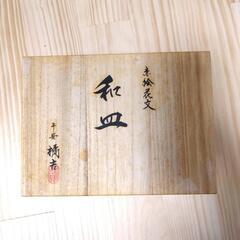 赤絵花文
和皿
平安 橘吉